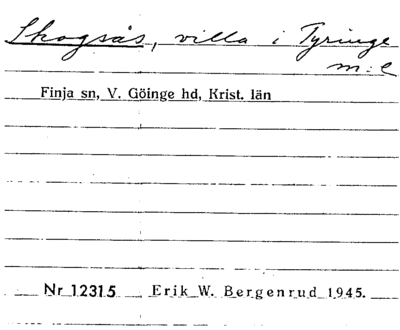 Skogsås, villa i Tyringe
m:e
Finja sn, V. Göinge hd, Krist. län
Nr 12315 Erik W. Bergenrud 1945.